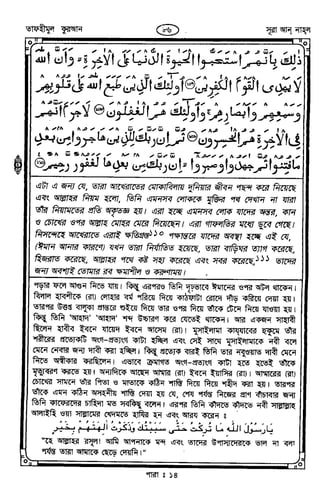 তাফহীমুল কুরআন
৮৬
সূরা আন্ নাহ্‌ল
ذٰلِكَ بِاَنَّهُمُ اسْتَحَبُّوا الْحَيٰوةَ الدُّنْيَا عَلَى الْاٰخِرَةِ ۙ وَاَنَّ اللهَ
لَا يَهْدِى الْقَوْمَ الْكٰفِرِيْنَ ۝ اُولٰٓئِكَ الَّذِيْنَ طَبَعَ اللهُ عَلٰى قُلُوْبِهِمْ
وَسَمْعِهِمْ وَاَبْصَارِهِمْ ۚ وَاُولٰٓئِكَ هُمُ الْغٰفِلُوْنَ ۝ لَا جَرَمَ اَنَّهُمْ
فِى الْاٰخِرَةِ هُمُ الْخٰسِرُوْنَ ۝ ثُمَّ اِنَّ رَبَّكَ لِلَّذِيْنَ هَاجَرُوْا مِنْۢ بَعْدِ
مَا فُتِنُوْا ثُمَّ جٰهَدُوْا وَصَبَرُوْٓا ۙ اِنَّ رَبَّكَ مِنْۢ بَعْدِهَا لَغَفُوْرٌ رَّحِيْمٌ ۝
এটা এ জন্য যে, তারা আখেরাতের মোকাবিলায় দুনিয়ার জীবন পছন্দ করে নিয়েছে
এবং আল্লাহর নিয়ম হলো, তিনি এমনসব লোককে মুক্তির পথ দেখান না যারা
তাঁর নিয়ামতের প্রতি অকৃতজ্ঞ হয়। এরা হচ্ছে এমনসব লোক যাদের অন্তর, কান
ও চোখের ওপর আল্লাহ মোহর মেরে দিয়েছেন। এরা গাফলতির মধ্যে ডুবে গেছে।
নিসন্দেহে আখেরাতে এরাই ক্ষতিগ্রস্ত১১০ পক্ষান্তরে যাদের অবস্থা হচ্ছে এই যে,
(ঈমান আনার কারণে) যখন তারা নির্যাতিত হয়েছে, তারা বাড়িঘর ত্যাগ করেছে,
হিজরাত করেছে, আল্লাহর পথে কষ্ট সহ্য করেছে এবং সবর করেছে,১১১ তাদের
জন্য অবশ্যই তোমার রব ক্ষমাশীল ও করুণাময়।
পড়ার ফলে আগুন নিভে যায়। কিন্তু এরপরও তিনি দৃঢ়ভাবে ঈমানের ওপর অটল থাকেন।
বিলাল হাবশীকে (রা) লোহার বর্ম পরিয়ে দিয়ে কাঠফাটা রোদে দাঁড় করিয়ে দেয়া হয়।
তারপর উত্তপ্ত বালুকা প্রান্তরে শুইয়ে দিয়ে তার ওপর দিয়ে তাঁকে টেনে নিয়ে যাওয়া হয়।
কিন্তু তিনি 'আহাদ' 'আহাদ' শব্দ উচ্চারণ করে যেতেই থাকেন। আর একজন সাহাবী
ছিলেন হাবীব ইবনে যায়েদ ইবনে আসেম (রা)। মুসাইলামা কায্‌যাবের হুকুমে তাঁর
শরীরের প্রত্যেকটি অংগ-প্রত্যংগ কাটা হচ্ছিল এবং সেই সাথে মুসাইলামাকে নবী বলে
মেনে নেবার জন্য দাবী করা হচ্ছিল। কিন্তু প্রত্যেক বারই তিনি তার নবুওয়াত দাবী মেনে
নিতে অস্বীকার করছিলেন। এভাবে ক্রমাগত অংগ-প্রত্যংগ কাটা হতে হতেই তাঁকে
মৃত্যুবরণ করতে হয়। অন্যদিকে আছেন আম্মার (রা) ইবনে ইয়াসির (রা)। আম্মারের (রা)
চোখের সামনে তাঁর পিতা ও মাতাকে কঠিন শাস্তি দিয়ে দিয়ে শহীদ করা হয়। তারপর
তাঁকে এমন কঠিন অসহনীয় শাস্তি দেয়া হয় যে, শেষ পর্যন্ত নিজের প্রাণ বাঁচাবার জন্য
তিনি কাফেরদের চাহিদা মত সবকিছু বলেন। এরপর তিনি কাঁদতে কাঁদতে নবী সাল্লাল্লাহু
আলাইহি ওয়া সাল্লামের খেদমতে হাযির হন এবং আরয করেন :
يَا رَسُوْلَ اللهِ مَا تُرِكْتُ حَتّٰى سَبَبْتُكَ وَذَكَرْتُ اٰلِهَتَهُمْ بِخَيْرٍ
"হে আল্লাহর রসূল! আমি আপনাকে মন্দ এবং তাদের উপাস্যদেরকে ভাল না বলা
পর্যন্ত তারা আমাকে ছেড়ে দেয়নি।"
পারা : ১৪